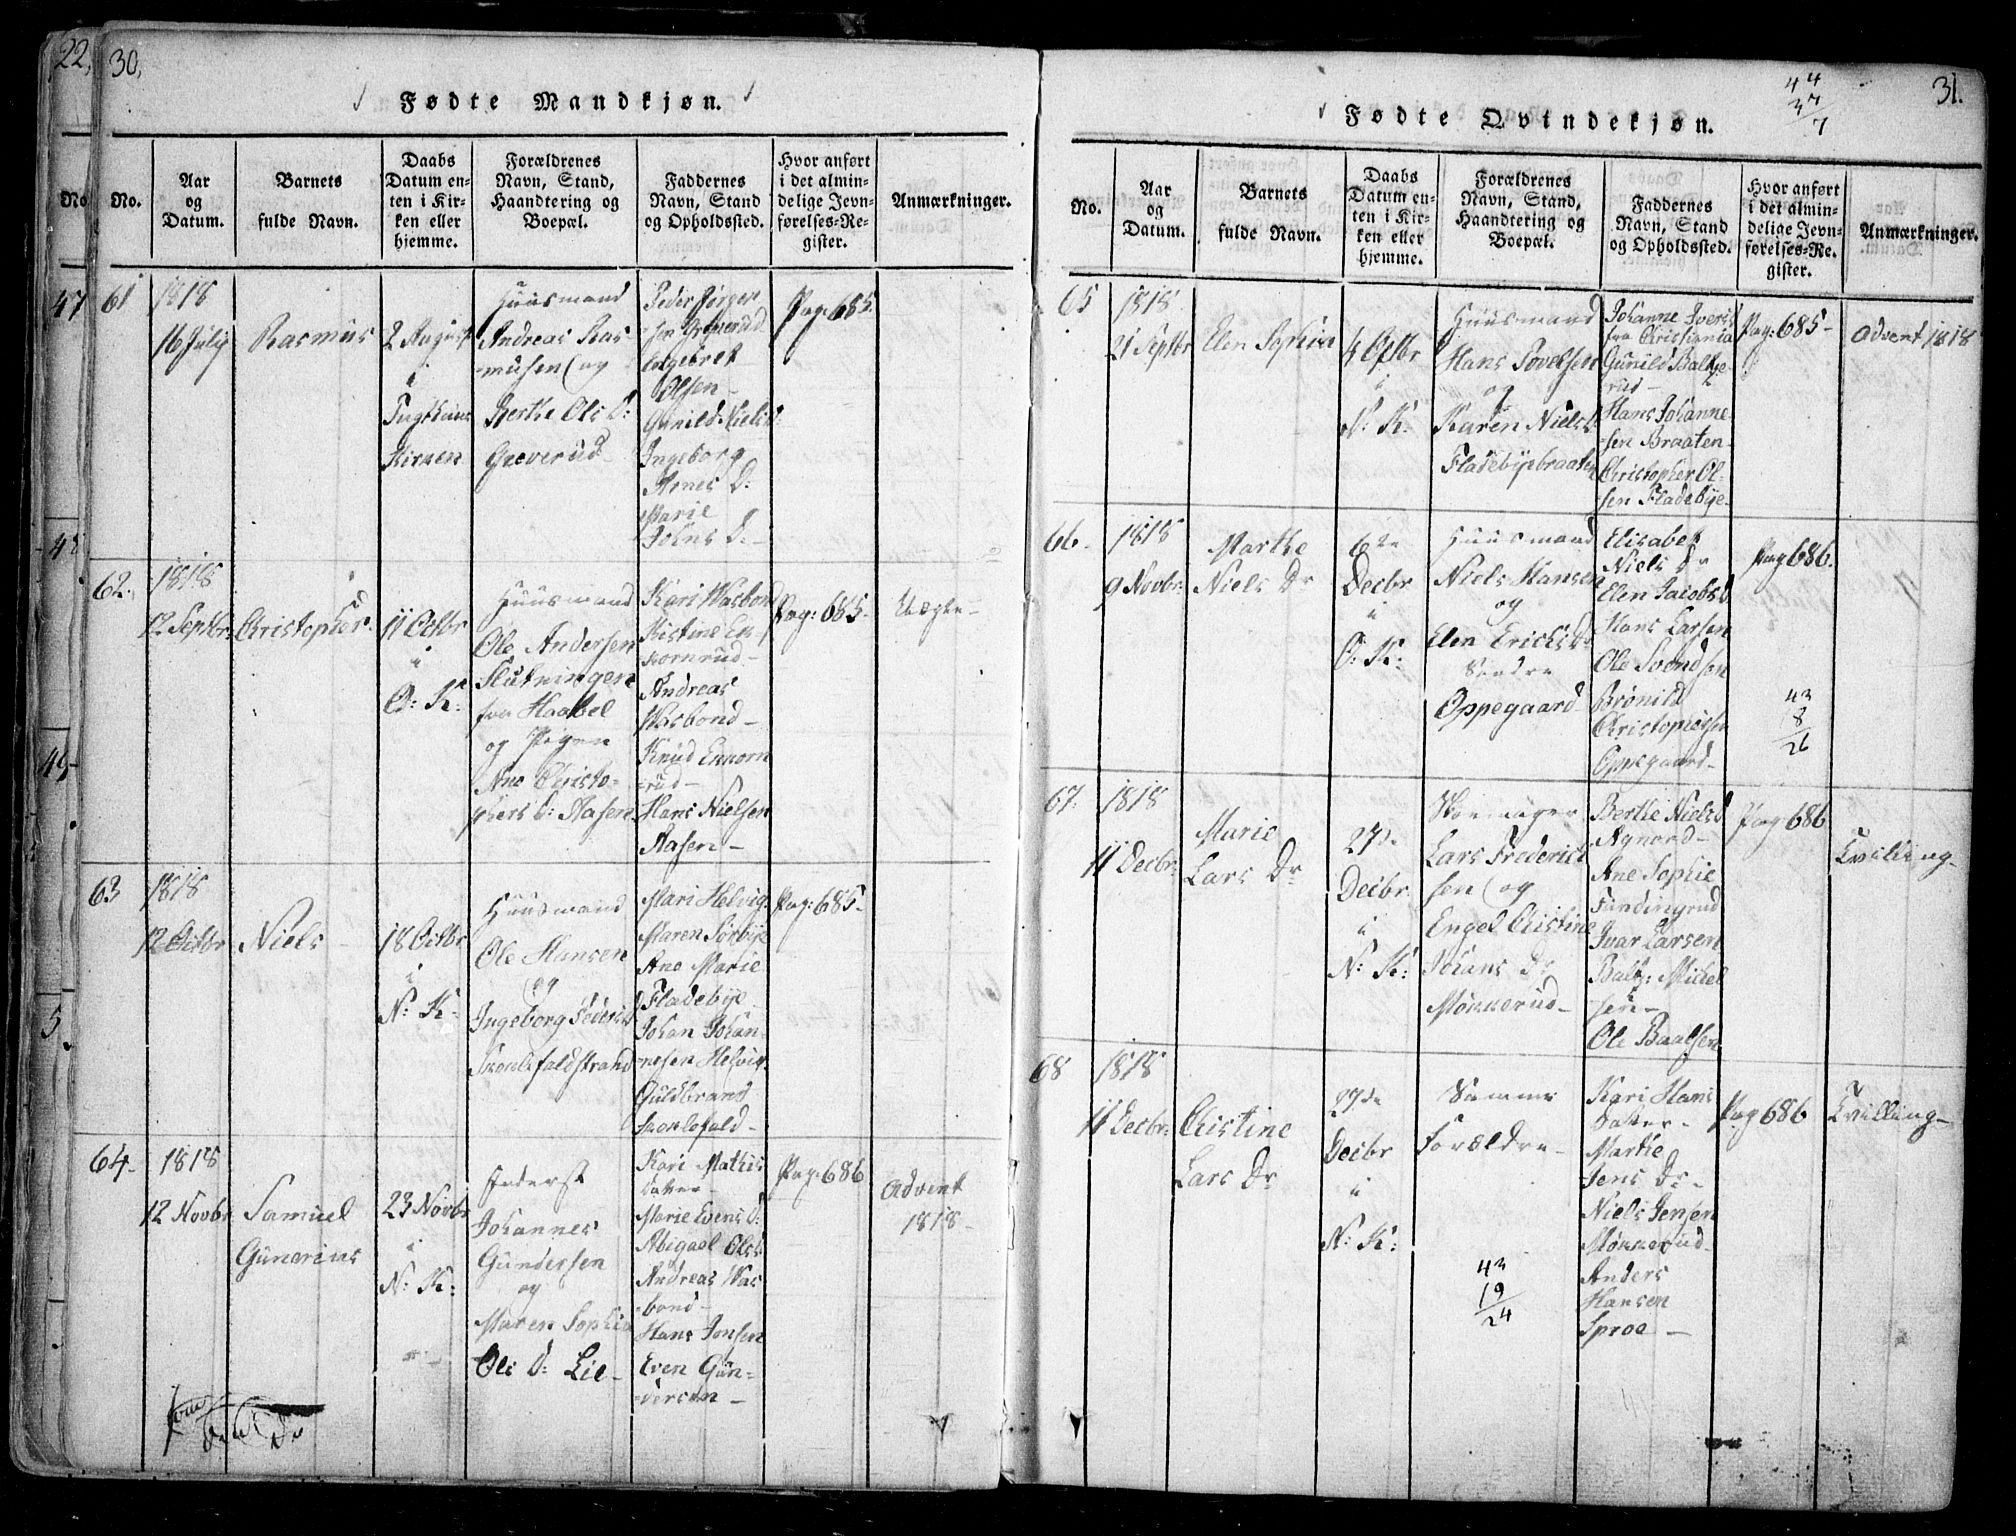 22,
30,
Fødte Mandkjøn.
No.
No.
Aar
og
Datum.
Barnets
fulde Navn.
Daabs
Datum en-
ten i Kir-
ken eller
hjemme.
Forældrenes
Navn, Stand,
Haandtering og
Boepæl.
Faddernes
Navn, Stand
og Opholdssted.
Hvor anført
i det almin-
delige Jevn-
førelses-Re-
gister.
Anmærkninger.
47
48
49
5
61
1818
16 Julij
Rasmus
2 August
i
Kirken
Huusmand
Andreas Ras
musen og
Berthe Ols D:
Greverud
Peder Jørgen
sen Greverud
Engebret
Olsen
Gunild Niels D
Ingeborg
Arnes D:
Marie
Johns D:
Pag: 685.
62.
1818
12 Septbr:
Christopher.
11 Octbr
i
O: K:
Huusmand
Ole Andersen
Slutningen
fra Haabel
og Pigen
Ane Christo-
phers D: Aasen
Kari Wasbond
Kistine Ek-
kornrud
Andreas
Wasbond
Knud Ekkorn
rud
Hans Nielsen
Aasen
Pag: 685.
Uægte
63
1818
12 Octbr
Niels
18 Octbr
i
N: K:
Huusmand
Ole Hansen
og
Ingeborg Peders D
Skrolefaldstrand
Mari Helvig
Maren Sørbye
Ane Marie
Fladebye
Johan Johan-
nesen Helvig
Guldbrand
Skrolefald
Pag: 685.
64.
1818
12 Novbr
Samuel
Gunerius
23 Novbr
i
N: K:
Inderst
Johannes
Gundersen
og
Maren Sophia
Ols D: Lie
Kari Mathis
Datter
Marie Evens D:
Abigael Ols D
Andreas Was
bond
Hans Jonsen
Even Gun-
dersen
Pag: 686
Advent
1818
31.
44
37
7
Fødte Qvindekjøn.
No.
Aar
og
Datum.
Barnets
fulde Navn.
Daabs
Datum en-
ten i Kir-
ken eller
hjemme.
Forældrenes
Navn, Stand,
Haandtering og
Boepæl.
Faddernes
Navn, Stand
og Opholdssted.
Hvor anført
i det almin-
delige Jevn-
førelses-Re-
gister.
Anmærkninger.
65
1818
21 Septbr
Elen Sophia
4 Octbr
i
N: K:
Huusmand
Hans Povelsen
og
Karen Niels D
Fladebyebraaten
Johanne Ivers
fra Christiania
Gunild Balke-
rud
Hans Johanne
sen Braaten
Christopher Ol-
sen Fladebye
Pag: 685
Advent 1818
66.
1818
9 Novbr:
Marthe
Niels Dr
6te
Decbr
i
O: K:
Huusmand
Niels Hansen
og
Elen Erichs D
Søndre
Oppegaard
Elisabet
Niels Dr
Elen Jacobs D
Hans Larsen
Ole Svendsen
Brønild
Christophersen
Oppegaard
Pag 686.
43
18
26
67.
1818
11 Decbr:
Marie
Lars Dr
27de
Decbr
i
N: K:
Skomager
Lars Frederich
sen og
Engel Christine
Johans Dr
Mønkerud
Berthe Niels D
Agnord
Ane Sophie
Fundingrud
Ivar Larsen
Baltz: Mickel
sen
Ole Baalsen
Pag 686
Tvilling
68
1818
11 Decbr:
Christine
Lars Dr
27de
Decbr
i
N: K:
Samme
Forældre
43
19
24
Kari Hans
Datter
Marthe
Jens Dr
Niels Jensen
Mønkerud
Anders
Hansen
Sproe
Pag 686
Tvilling